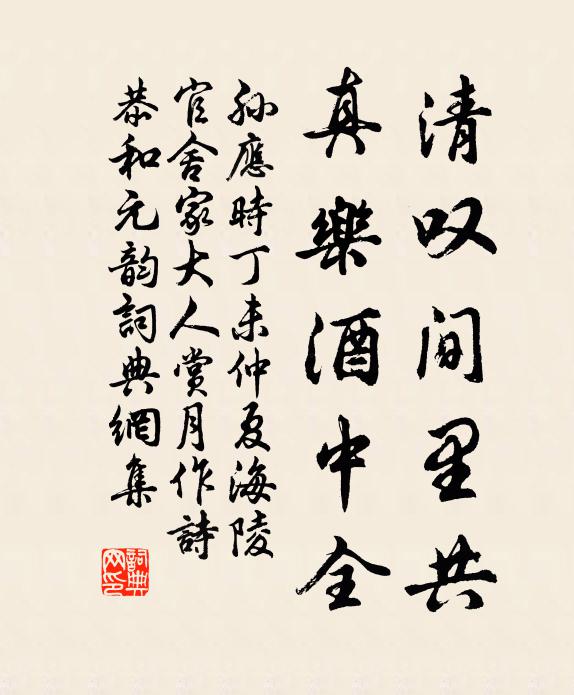 清叹间里共
真樂酒中全
孙應時丁未仲夏海陵
官舍家大人賞月作詩
恭和元韵詞典網集
詞典網印